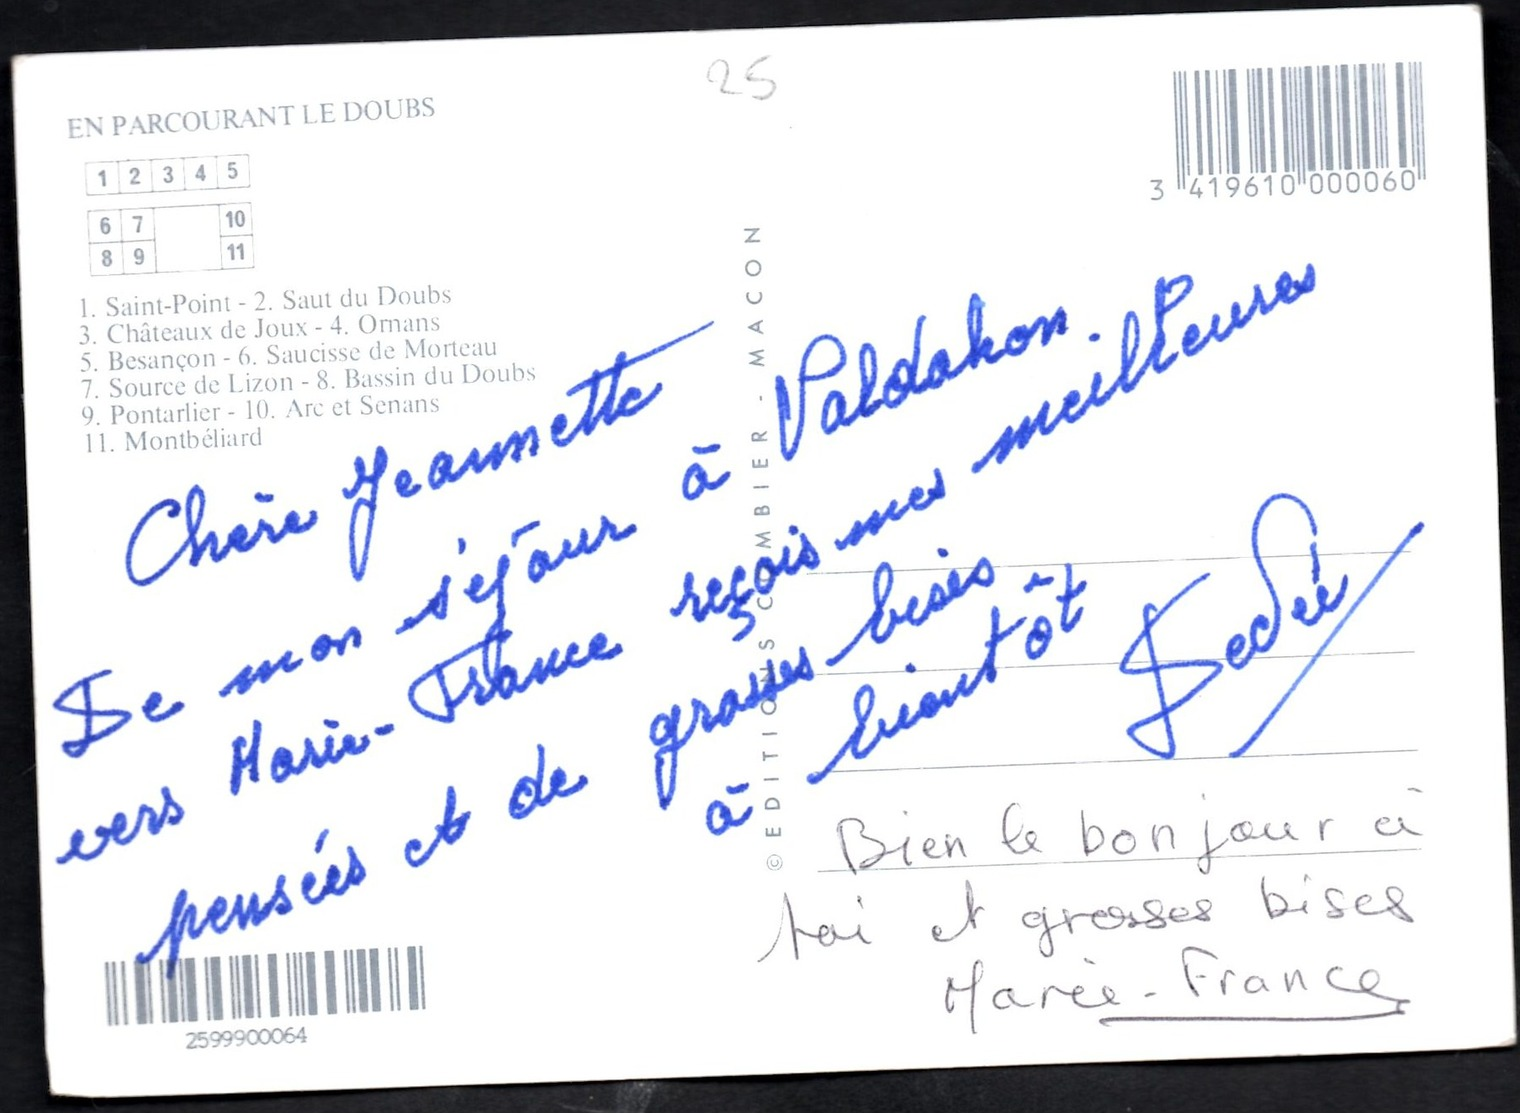 25
EN PARCOURANT LE DOUBS
1 2 3 4 5
6 7 10
8 9 11
1. Saint-Point - 2. Saut du Doubs
3. Châteaux de Joux - 4. Ornans
5. Besançon - 6. Saucisse de Morteau
7. Source de Lizon - 8. Bassin du Doubs
9. Pontarlier - 10. Arc et Senans
11. Montbéliard
3 419610 000060
Chère Jeannette
De mon séjour à Valdahon.
vers Marie-France reçois mes meilleures
pensées et de grosses bises
à bientôt Dédée
© EDITIONS COMBIER - MACON
Bien le bonjour à
toi et grosses bises
Marie-France
2599900064